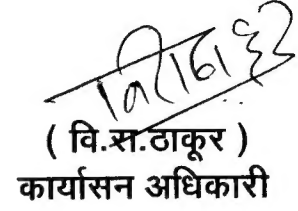 ( वि.स.ठाकूर )
कार्यासन अधिकारी